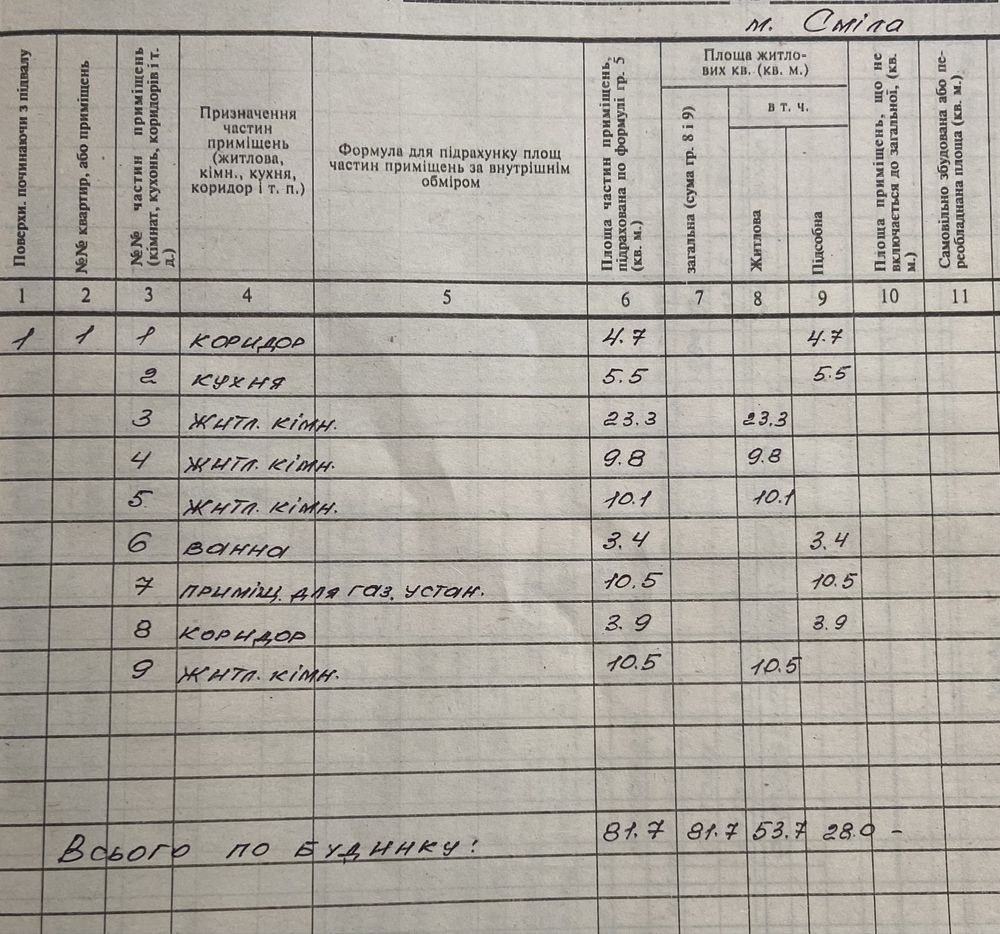 м. Сміла
Поверхи. починаючи з підвалу
№№ квартир, або приміщень
№№ частин приміщень (кімнат, кухонь, коридорів і т. д.)
Призначення
частин
приміщень
(житлова,
кімн., кухня,
коридор і т. п.)
Формула для підрахунку площ
частин приміщень за внутрішнім
обміром
Площа частин приміщень, підрахована по формулі гр. 5 (кв. м.)
Площа житло-
вих кв. (кв. м.)
загальна (сума гр. 8 і 9)
в т. ч.
Житлова
Підсобна
Площа приміщень, що не включається до загальної, (кв. м.)
Самовільно збудована або пе-
реобладнана площа (кв. м.)
1 2 3 4 5 6 7 8 9 10 11
1 1 1 коридор 4.7 4.7
2 кухня 5.5 5.5
3 житл. кімн. 23.3 23.3
4 житл. кімн. 9.8 9.8
5 житл. кімн. 10.1 10.1
6 ванна 3.4 3.4
7 приміщ. для газ. устан. 10.5 10.5
8 коридор 3.9 3.9
9 житл. кімн. 10.5 10.5
Всього по будинку: 81.7 81.7 53.7 28.0 -